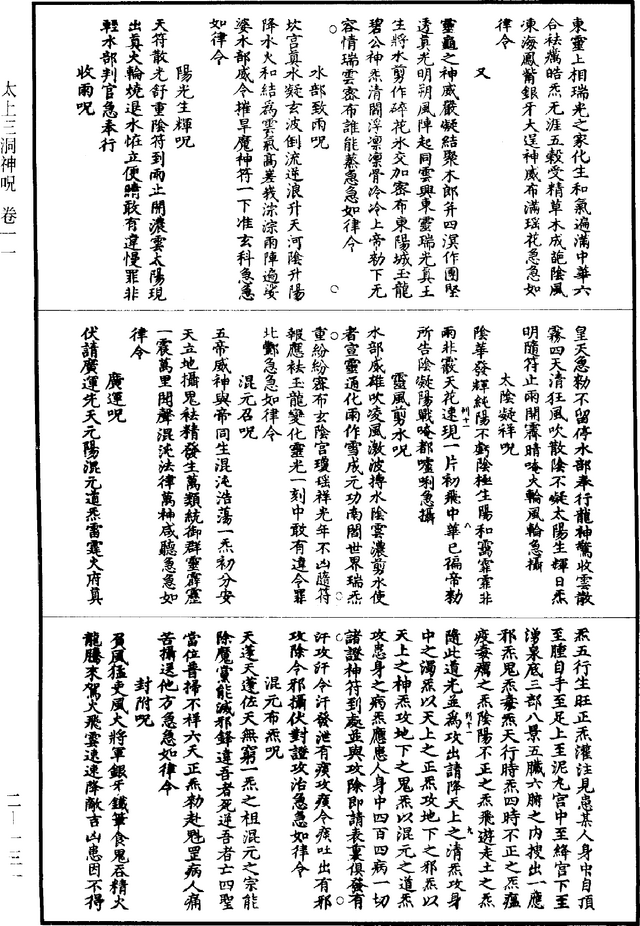 東靈上相瑞光之家化生和氣遍滿中華六
合袪癘皓炁無涯五穀受精草木成葩陰風
凍海鳳觜銀牙大逞神威布滿瑶花急急如
律令
又
靈龜之神威嚴凝結聚木郎并四溟作團堅
透真光明朔風陣起同雲興東靈瑞光真王
生將水剪作碎花氷交加密布東陽城玉龍
碧公神炁清閟浮凛凛骨冷冷上帝勑下无
容情瑞雲密布誰能蒸急急如律令
水部致雨呪
坎宫真水凝玄波倒流逆浪升天河陰升陽
降水火和結為雲氣高峩峩淙淙雨陣遍娑
婆水部威令摧旱魔神符一下准玄科急急
如律令
陽光生輝呪
天符散光舒重陰符到雨止開濃雲太陽現
出真火輪燒退水恠立便晴敢有違慢罪非
輕水部判官急奉行
收雨呪
皇天急勑不留停水部奉行龍神驚收雲散
霧四天清狂風吹散陰不凝太陽生輝日炁
明隨符止雨開霽晴唵火輪風輪急攝
太陰凝祥呪
陰華發輝純陽不虧陰極生陽和靄霏霏非
雨非霰天花速現一片初飛中華已徧帝勑
所告陰凝陽戰唵都嚧唎急攝
靈風剪水呪
水部威雄吹凌風激波摶水陰雲濃剪水使
者宣靈通化雨作雪成元功南閻世界瑞炁
重紛紛密布玄陰宫瓊瑶祥光年不凶隨符
報應袪玉龍變化靈光一刻中敢有違令罪
北酆急急如律令
混元召呪
五帝威神與帝同生混沌浩蕩一炁初分安
天立地攝鬼袪精發生萬類統御群靈霹靂
一震萬里聞聲混沌法律萬神咸聽急急如
律令
廣運呪
伏請廣運先天元陽混元道炁雷霆火府真
炁五行生旺正炁灌注見患某人身中自頂
至腫自手至足上至泥丸宫中至絳宫下至
湧泉底三部八景五臟六腑之内搜出一應
邪炁鬼炁毒炁天行時炁四時不正之炁瘟
疫毒癘之炁陰陽不正之炁飛遊走土之炁
隨此道光並為攻出請降天上之清炁攻身
中之濁炁以天上之正炁攻地下之邪炁以
天上之神炁攻地下之鬼炁以混元之道炁
攻患身之病炁應患人身中四百四病一切
諸證神符到處並與攻除即請表裏俱發有
汗攻汗令汗發泄有痰攻痰令痰吐出有邪
攻除令邪攝伏對證攻治急急如律令
混元布炁呪
天蓬天蓬佐天無窮一炁之祖混元之宗能
除魔黨能滅邪鋒違吾者死逆吾者亡四聖
當位普掃不祥六天正炁勑赴魁罡病人痛
苦攝送他方急急如律令
封附呪
賀風猛吏風火將軍銀牙鐵篳食鬼吞精火
龍騰來駕火飛雲速速降敵吉凶患因不得
太上三洞神呪 卷一一
二—一三一